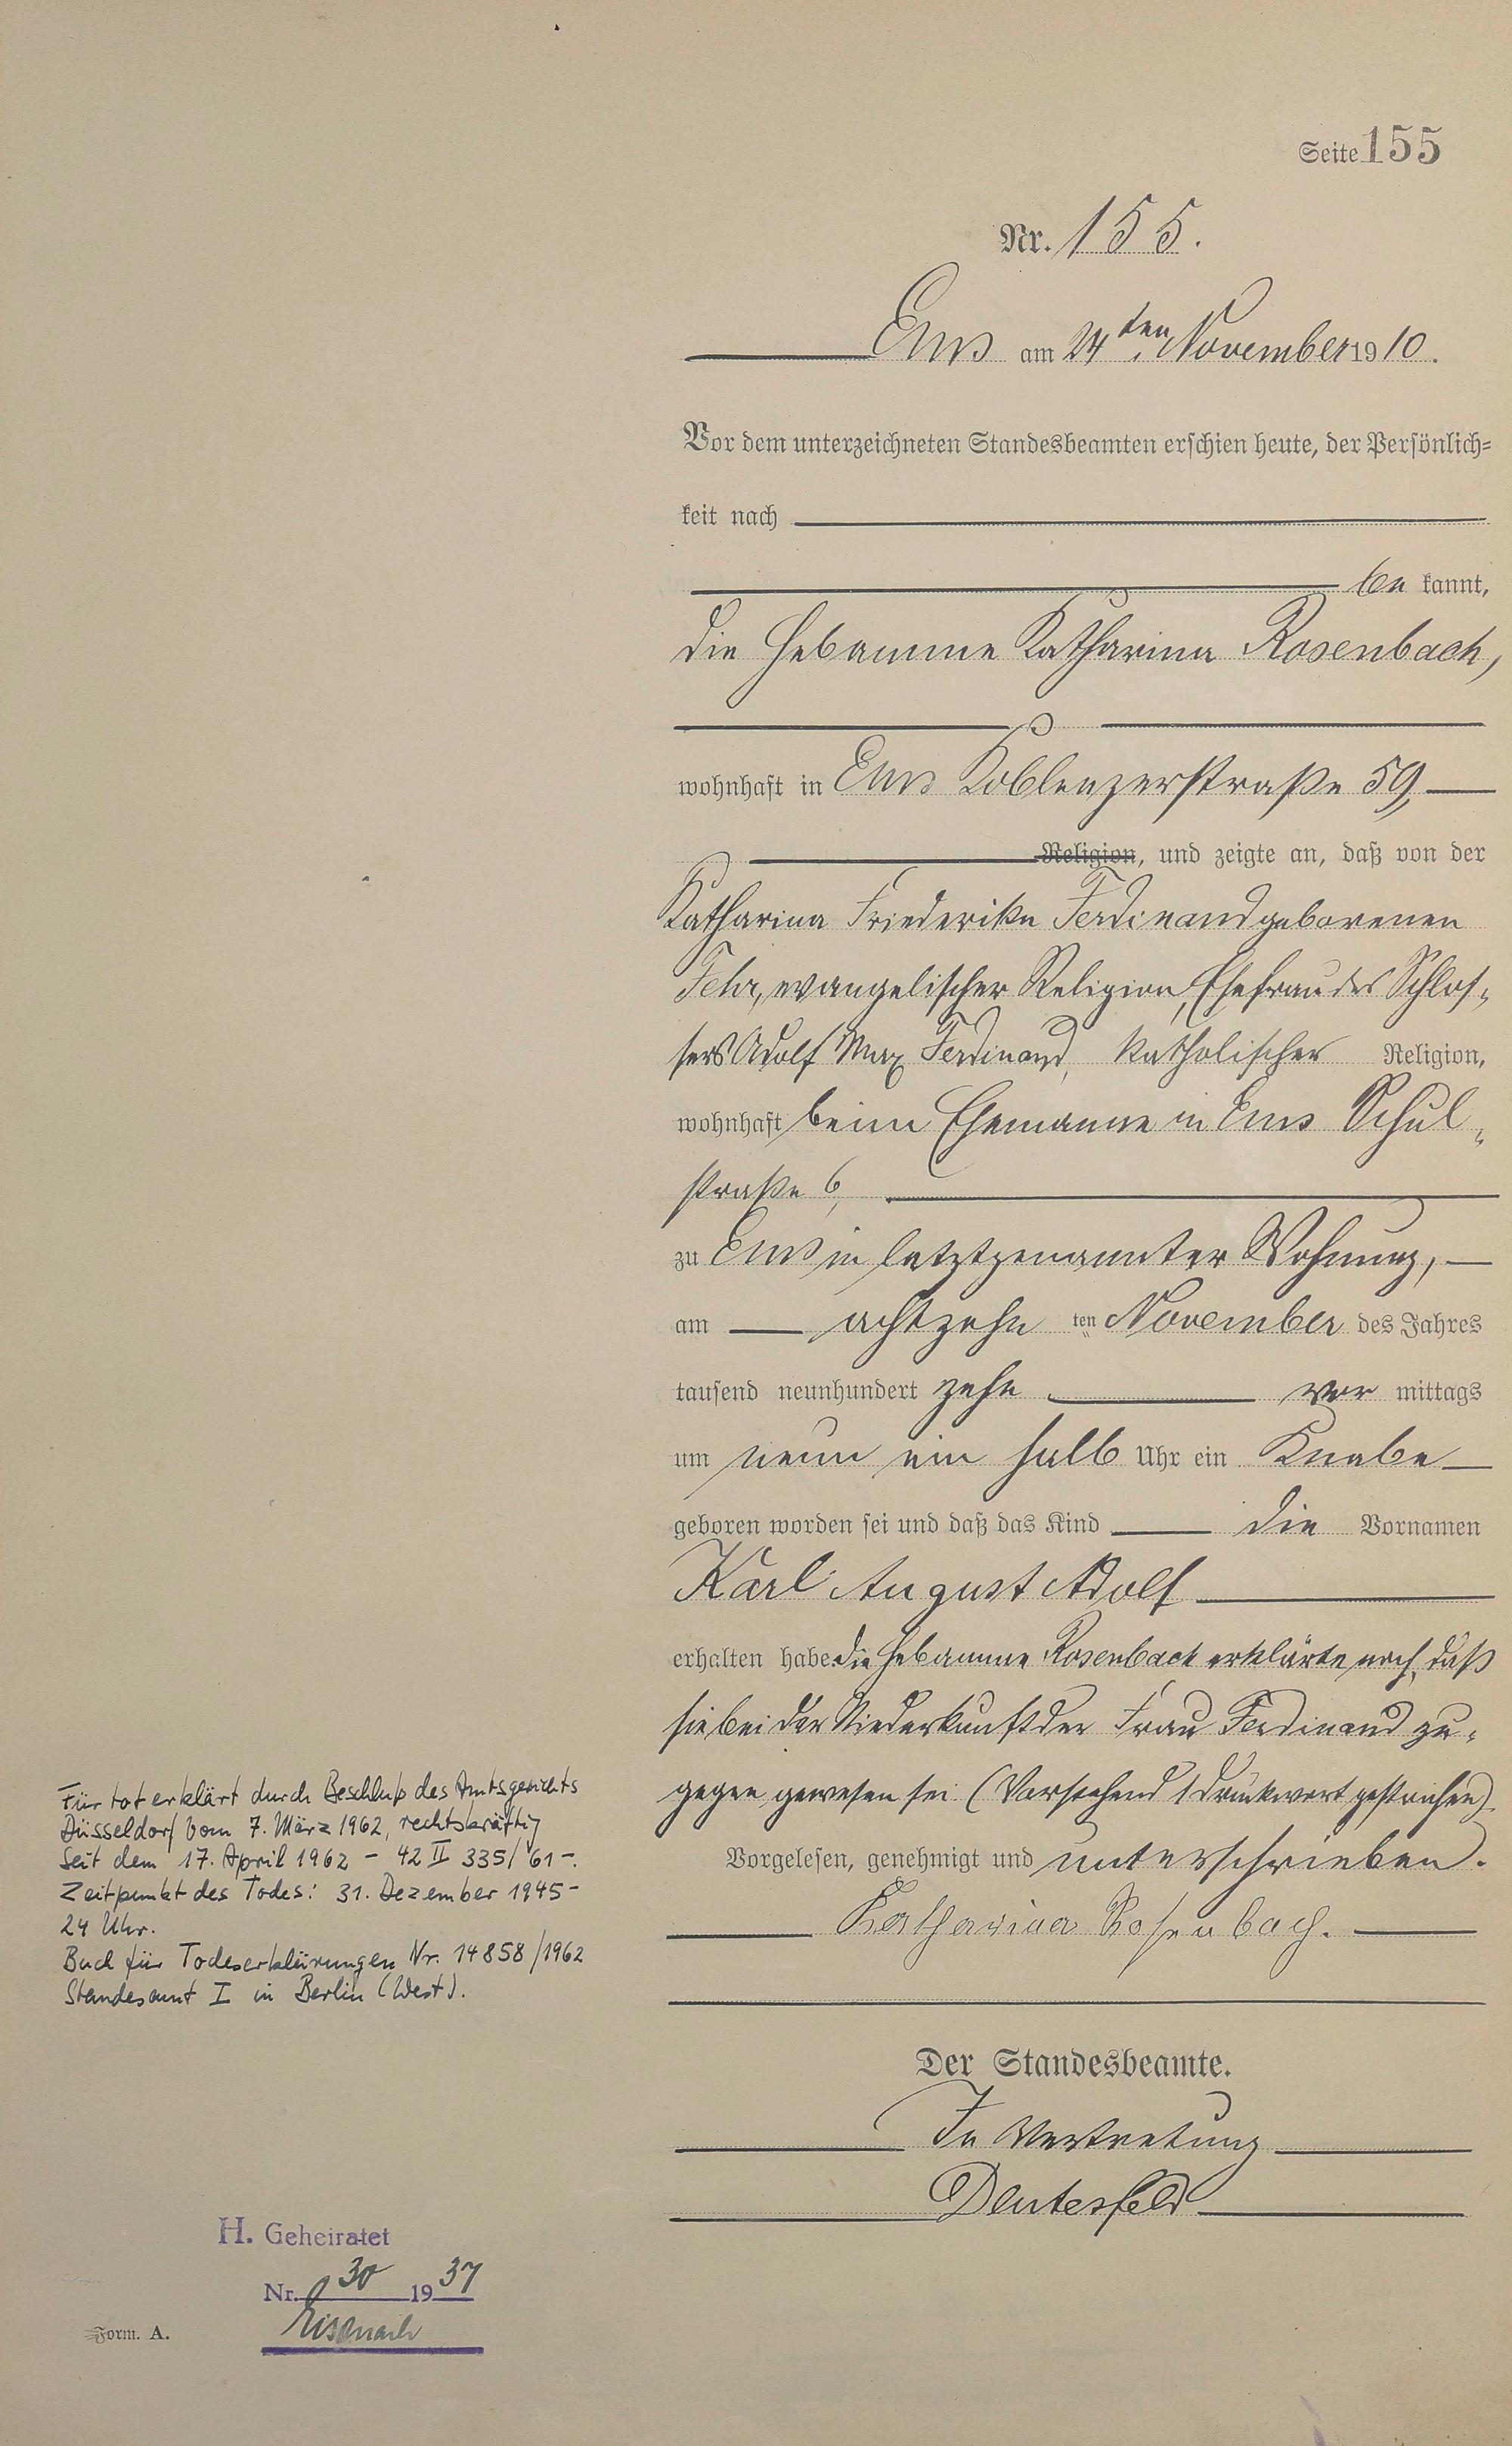 Seite 155
Nr. 155.
Ems am 24ten November 1910.
Vor dem unterzeichneten Standesbeamten erschien heute, der Persönlich=
keit nach
be kannt,
die Hebamme Katharina Rosenbach,
wohnhaft in Ems Koblenzerstraße 59,
Religion, und zeigte an, daß von der
Katharina Friederike Ferdinand geborenen
Fehr, evangelischer Religion, Ehefrau des Schlos=
sers Adolf Max Ferdinand, katholischer Religion,
wohnhaft beim Ehemanne in Ems Schul=
straße 6,
zu Ems in letztgenannter Wohnung,
am achtzehn ten November des Jahres
tausend neunhundert zehn vor mittags
um neun ein halb Uhr ein Knabe
geboren worden sei und daß das Kind die Vornamen
Karl August Adolf
erhalten habe. Die Hebamme Rosenbach erklärte noch, daß
sie bei der Niederkunft der Frau Ferdinand zu=
gegen gewesen sei. (Vorstehend 1 Druckwort gestrichen).
Vorgelesen, genehmigt und unterschrieben.
Katharina Rosenbach.
Der Standesbeamte.
In Vertretung
Für tot erklärt durch Beschluß des Amtsgerichts
Düsseldorf vom 7. März 1962, rechtskräftig
seit dem 17. April 1962 - 42 II 335/61 -.
Zeitpunkt des Todes: 31. Dezember 1945 -
24 Uhr.
Buch für Todeserklärungen Nr. 14858/1962
Standesamt I in Berlin (West).
H. Geheiratet
Nr. 30 1937
Eisenach
Form. A.